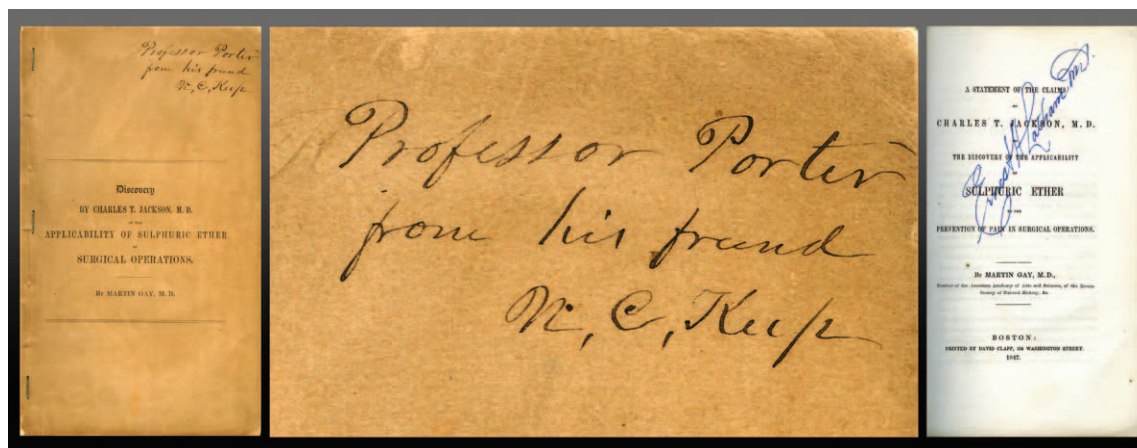 Professor Porter
from his friend
N, C, Keep
Discovery
BY CHARLES T. JACKSON, M. D.
OF THE
APPLICABILITY OF SULPHURIC ETHER
IN
SURGICAL OPERATIONS.
BY MARTIN GAY, M. D.
Professor Porter
from his friend
N, C, Keep
A STATEMENT OF THE CLAIMS
OF
CHARLES T. JACKSON, M. D.
THE DISCOVERY OF THE APPLICABILITY
SULPHURIC ETHER
TO THE
PREVENTION OF PAIN IN SURGICAL OPERATIONS.
BY MARTIN GAY, M.D.,
Member of the American Academy of Arts and Sciences, of the Boston
Society of Natural History, &c.
BOSTON:
PRINTED BY DAVID CLAPP, WASHINGTON STREET.
1847.
Ernest Latham M.D.